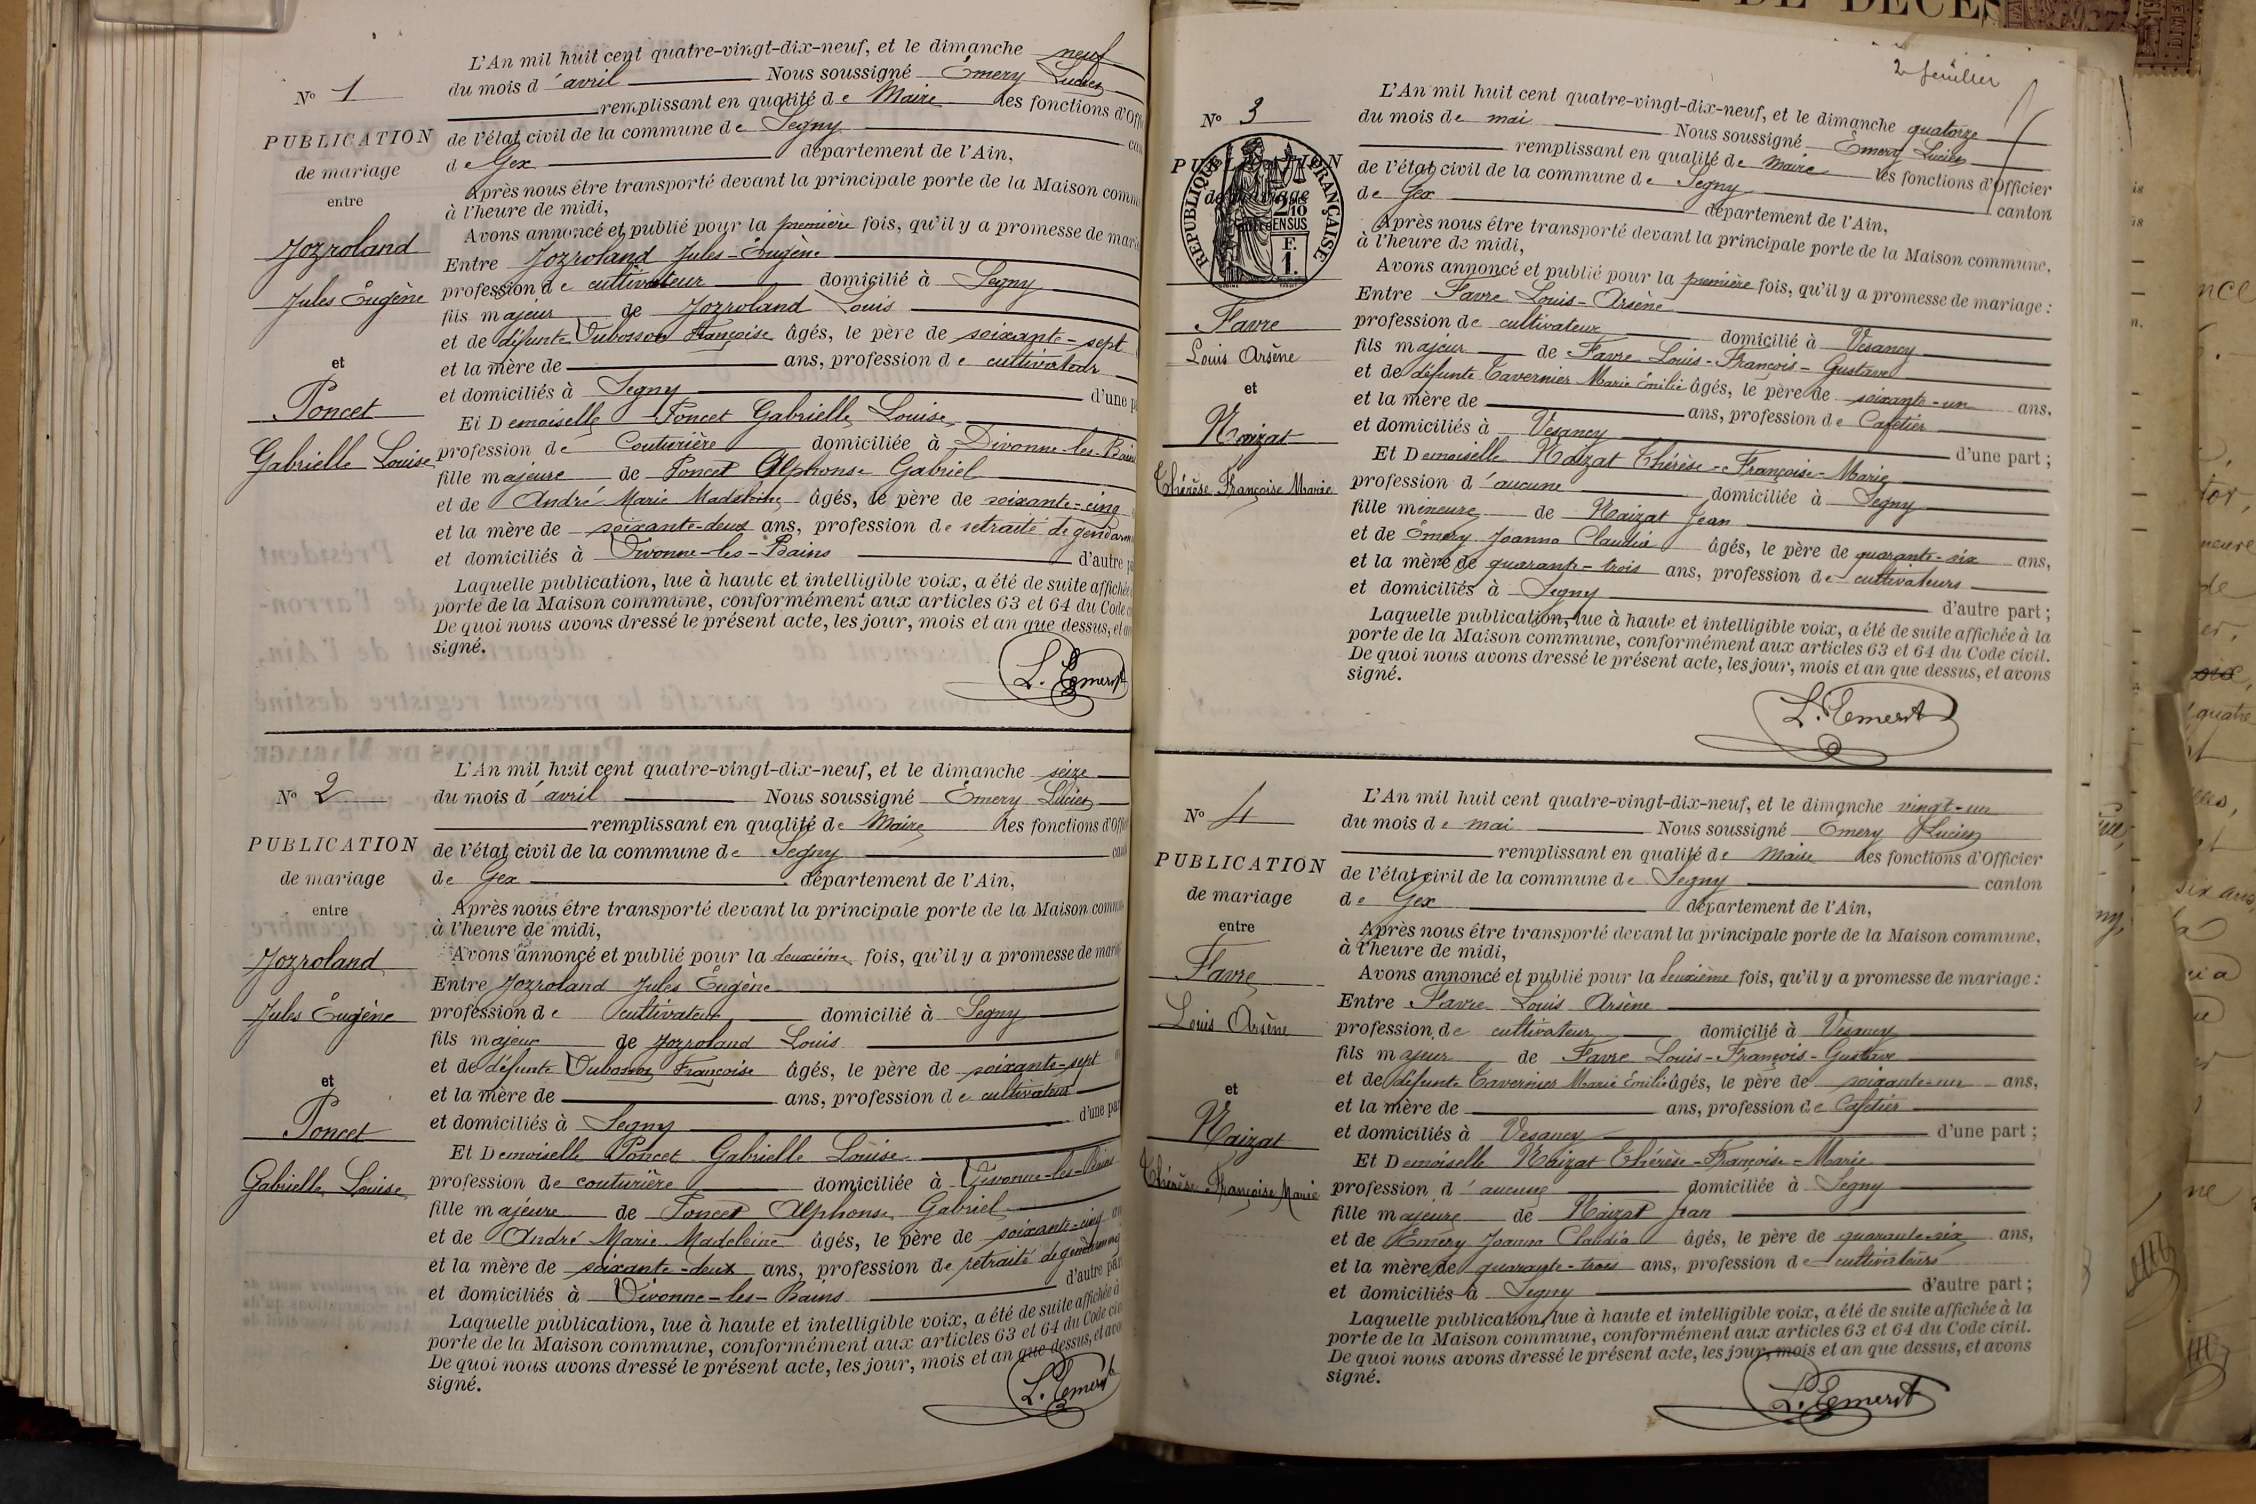 L'An mil huit cent quatre-vingt-dix-neuf, et le dimanche neuf
du mois d'avril Nous soussigné Émery Lucien
remplissant en qualité de Maire les fonctions d'Off
de l'état civil de la commune de Segny can
de Gex département de l'Ain,
Après nous être transporté devant la principale porte de la Maison comm
à l'heure de midi,
Avons annoncé et publié pour la première fois, qu'il y a promesse de mari
Entre Jozroland Jules-Eugène
profession de cultivateur domicilié à Segny
fils majeur de Jozroland Louis
et de défunte Dubosson Françoise âgés, le père de soixante-sept
et la mère de ans, profession de cultivateur
et domiciliés à Segny d'une p
Et Demoiselle Poncet Gabrielle Louise
profession de Couturière domiciliée à Divonne-les-Bains
fille majeure de Poncet Alphonse Gabriel
et de André Marie Madeleine âgés, le père de soixante-cinq
et la mère de soixante-deux ans, profession de retraité de gendarm
et domiciliés à Divonne-les-Bains d'autre p
Laquelle publication, lue à haute et intelligible voix, a été de suite affichée
porte de la Maison commune, conformément aux articles 63 et 64 du Code c
De quoi nous avons dressé le présent acte, les jour, mois et an que dessus, et av
signé.
L. Emery
N° 1
PUBLICATION
de mariage
entre
Jozroland
Jules Eugène
et
Poncet
Gabrielle Louise
L'An mil huit cent quatre-vingt-dix-neuf, et le dimanche seize
du mois d'avril Nous soussigné Émery Lucien
remplissant en qualité de Maire les fonctions d'Off
de l'état civil de la commune de Segny can
de Gex département de l'Ain,
Après nous être transporté devant la principale porte de la Maison commu
à l'heure de midi,
Avons annoncé et publié pour la deuxième fois, qu'il y a promesse de mari
Entre Jozroland Jules Eugène
profession de cultivateur domicilié à Segny
fils majeur de Jozroland Louis
et de défunte Dubosson Françoise âgés, le père de soixante-sept
et la mère de ans, profession de cultivateur
et domiciliés à Segny d'une par
Et Demoiselle Poncet Gabrielle Louise
profession de couturière domiciliée à Divonne-les-Bains
fille majeure de Poncet Alphonse Gabriel
et de André Marie Madeleine âgés, le père de soixante-cinq an
et la mère de soixante-deux ans, profession de retraité de gendarmerie
et domiciliés à Divonne-les-Bains d'autre par
Laquelle publication, lue à haute et intelligible voix, a été de suite affichée à
porte de la Maison commune, conformément aux articles 63 et 64 du Code civ
De quoi nous avons dressé le présent acte, les jour, mois et an que dessus, et avo
signé.
L. Emery
N° 2
PUBLICATION
de mariage
entre
Jozroland
Jules Eugène
et
Poncet
Gabrielle Louise
DE DÉCÈS
2e feuillet
L'An mil huit cent quatre-vingt-dix-neuf, et le dimanche quatorze
du mois de mai Nous soussigné Émery Lucien
remplissant en qualité de Maire les fonctions d'Officier
de l'état civil de la commune de Segny canton
de Gex département de l'Ain,
Après nous être transporté devant la principale porte de la Maison commune,
à l'heure de midi,
Avons annoncé et publié pour la première fois, qu'il y a promesse de mariage :
Entre Favre Louis-Arsène
profession de cultivateur domicilié à Vesancy
fils majeur de Favre Louis-François-Gustave
et de défunte Tavernier Marie Émilie âgés, le père de soixante-un ans,
et la mère de ans, profession de Cafetier
et domiciliés à Vesancy d'une part ;
Et Demoiselle Naizat Thérèse-Françoise-Marie
profession d'aucune domiciliée à Segny
fille mineure de Naizat Jean
et de Émery Joanna Claudia âgés, le père de quarante-six ans,
et la mère de quarante-trois ans, profession de cultivateurs
et domiciliés à Segny d'autre part ;
Laquelle publication, lue à haute et intelligible voix, a été de suite affichée à la
porte de la Maison commune, conformément aux articles 63 et 64 du Code civil.
De quoi nous avons dressé le présent acte, les jour, mois et an que dessus, et avons
signé.
L. Emery
N° 3
PUBLICATION
de mariage
entre
RÉPUBLIQUE FRANÇAISE
2/10 EN SUS
F.
1.
Favre
Louis Arsène
et
Naizat
Thérèse Françoise Marie
L'An mil huit cent quatre-vingt-dix-neuf, et le dimanche vingt-un
du mois de mai Nous soussigné Émery Lucien
remplissant en qualité de Maire les fonctions d'Officier
de l'état civil de la commune de Segny canton
de Gex département de l'Ain,
Après nous être transporté devant la principale porte de la Maison commune,
à l'heure de midi,
Avons annoncé et publié pour la deuxième fois, qu'il y a promesse de mariage :
Entre Favre Louis Arsène
profession de cultivateur domicilié à Vesancy
fils majeur de Favre Louis-François-Gustave
et de défunte Tavernier Marie Émilie âgés, le père de soixante-un ans,
et la mère de ans, profession de Cafetier
et domiciliés à Vesancy d'une part ;
Et Demoiselle Naizat Thérèse-Françoise-Marie
profession d'aucune domiciliée à Segny
fille majeure de Naizat Jean
et de Émery Joanna Claudia âgés, le père de quarante-six ans,
et la mère de quarante-trois ans, profession de cultivateurs
et domiciliés à Segny d'autre part ;
Laquelle publication, lue à haute et intelligible voix, a été de suite affichée à la
porte de la Maison commune, conformément aux articles 63 et 64 du Code civil.
De quoi nous avons dressé le présent acte, les jour, mois et an que dessus, et avons
signé.
L. Emery
N° 4
PUBLICATION
de mariage
entre
Favre
Louis Arsène
et
Naizat
Thérèse Françoise Marie